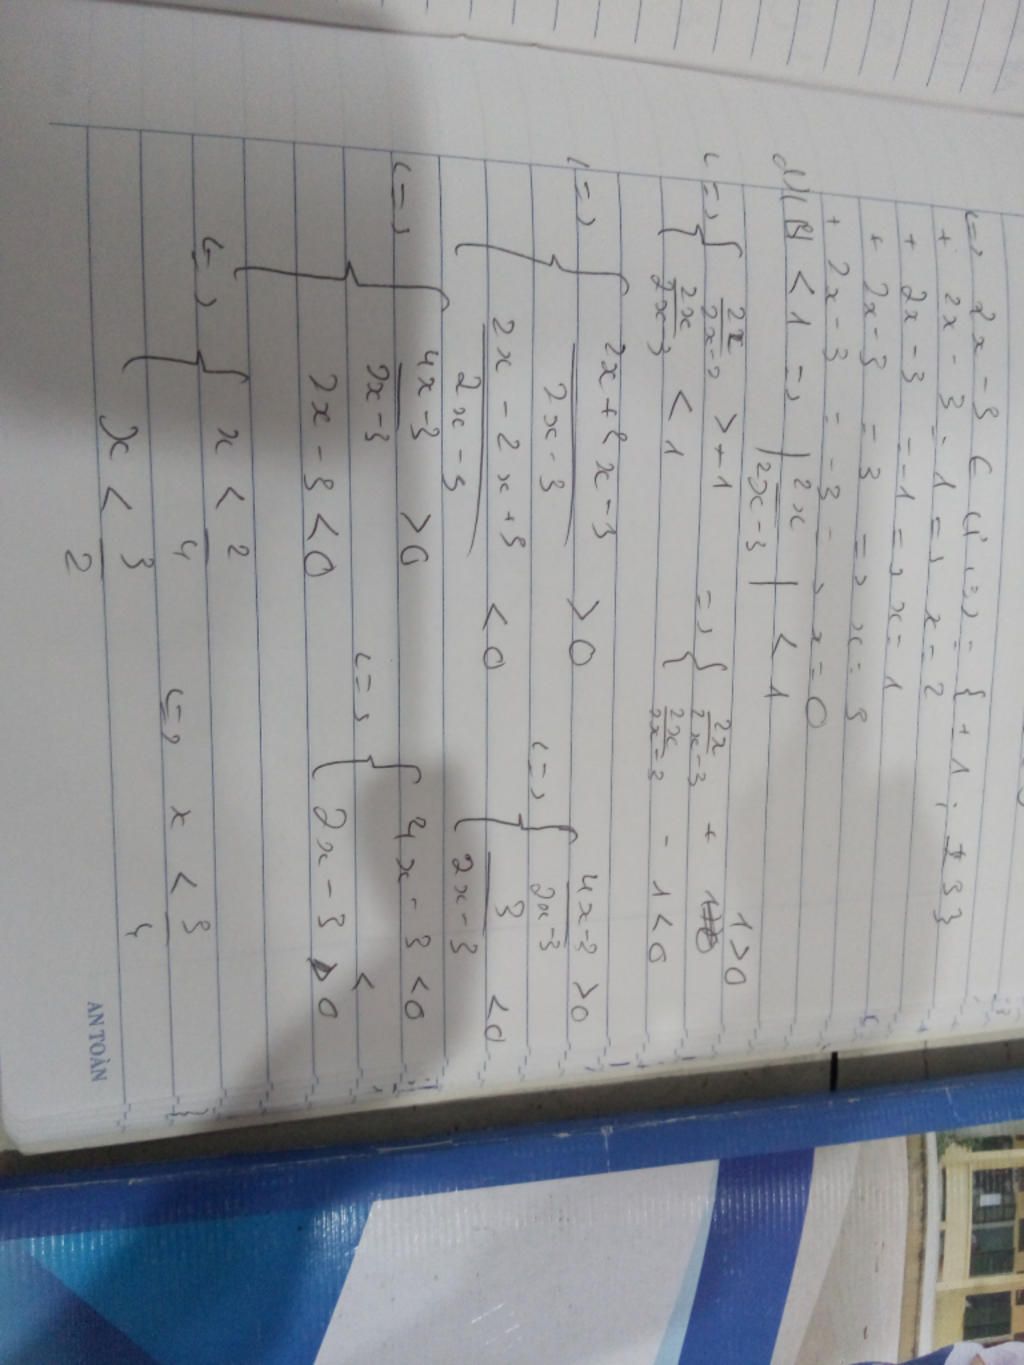 <=> 2x - 3 ∈ Ư(3) = {±1; ±3}
+ 2x - 3 = 1 => x = 2
+ 2x - 3 = -1 => x = 1
+ 2x - 3 = 3 => x = 3
+ 2x - 3 = -3 => x = 0
d) |B| < 1 => | 2x / 2x - 3 | < 1
<=> { 2x / 2x - 3 > -1 => { 2x / 2x - 3 + 1 > 0
2x / 2x - 3 < 1 2x / 2x - 3 - 1 < 0
<=> { 2x + 2x - 3 / 2x - 3 > 0 <=> { 4x - 3 / 2x - 3 > 0
2x - 2x + 3 / 2x - 3 < 0 3 / 2x - 3 < 0
<=> { 4x - 3 / 2x - 3 > 0 <=> { 4x - 3 < 0
2x - 3 < 0 2x - 3 < 0
<=> { x < 3 / 4 <=> x < 3 / 4
x < 3 / 2
AN TOÀN